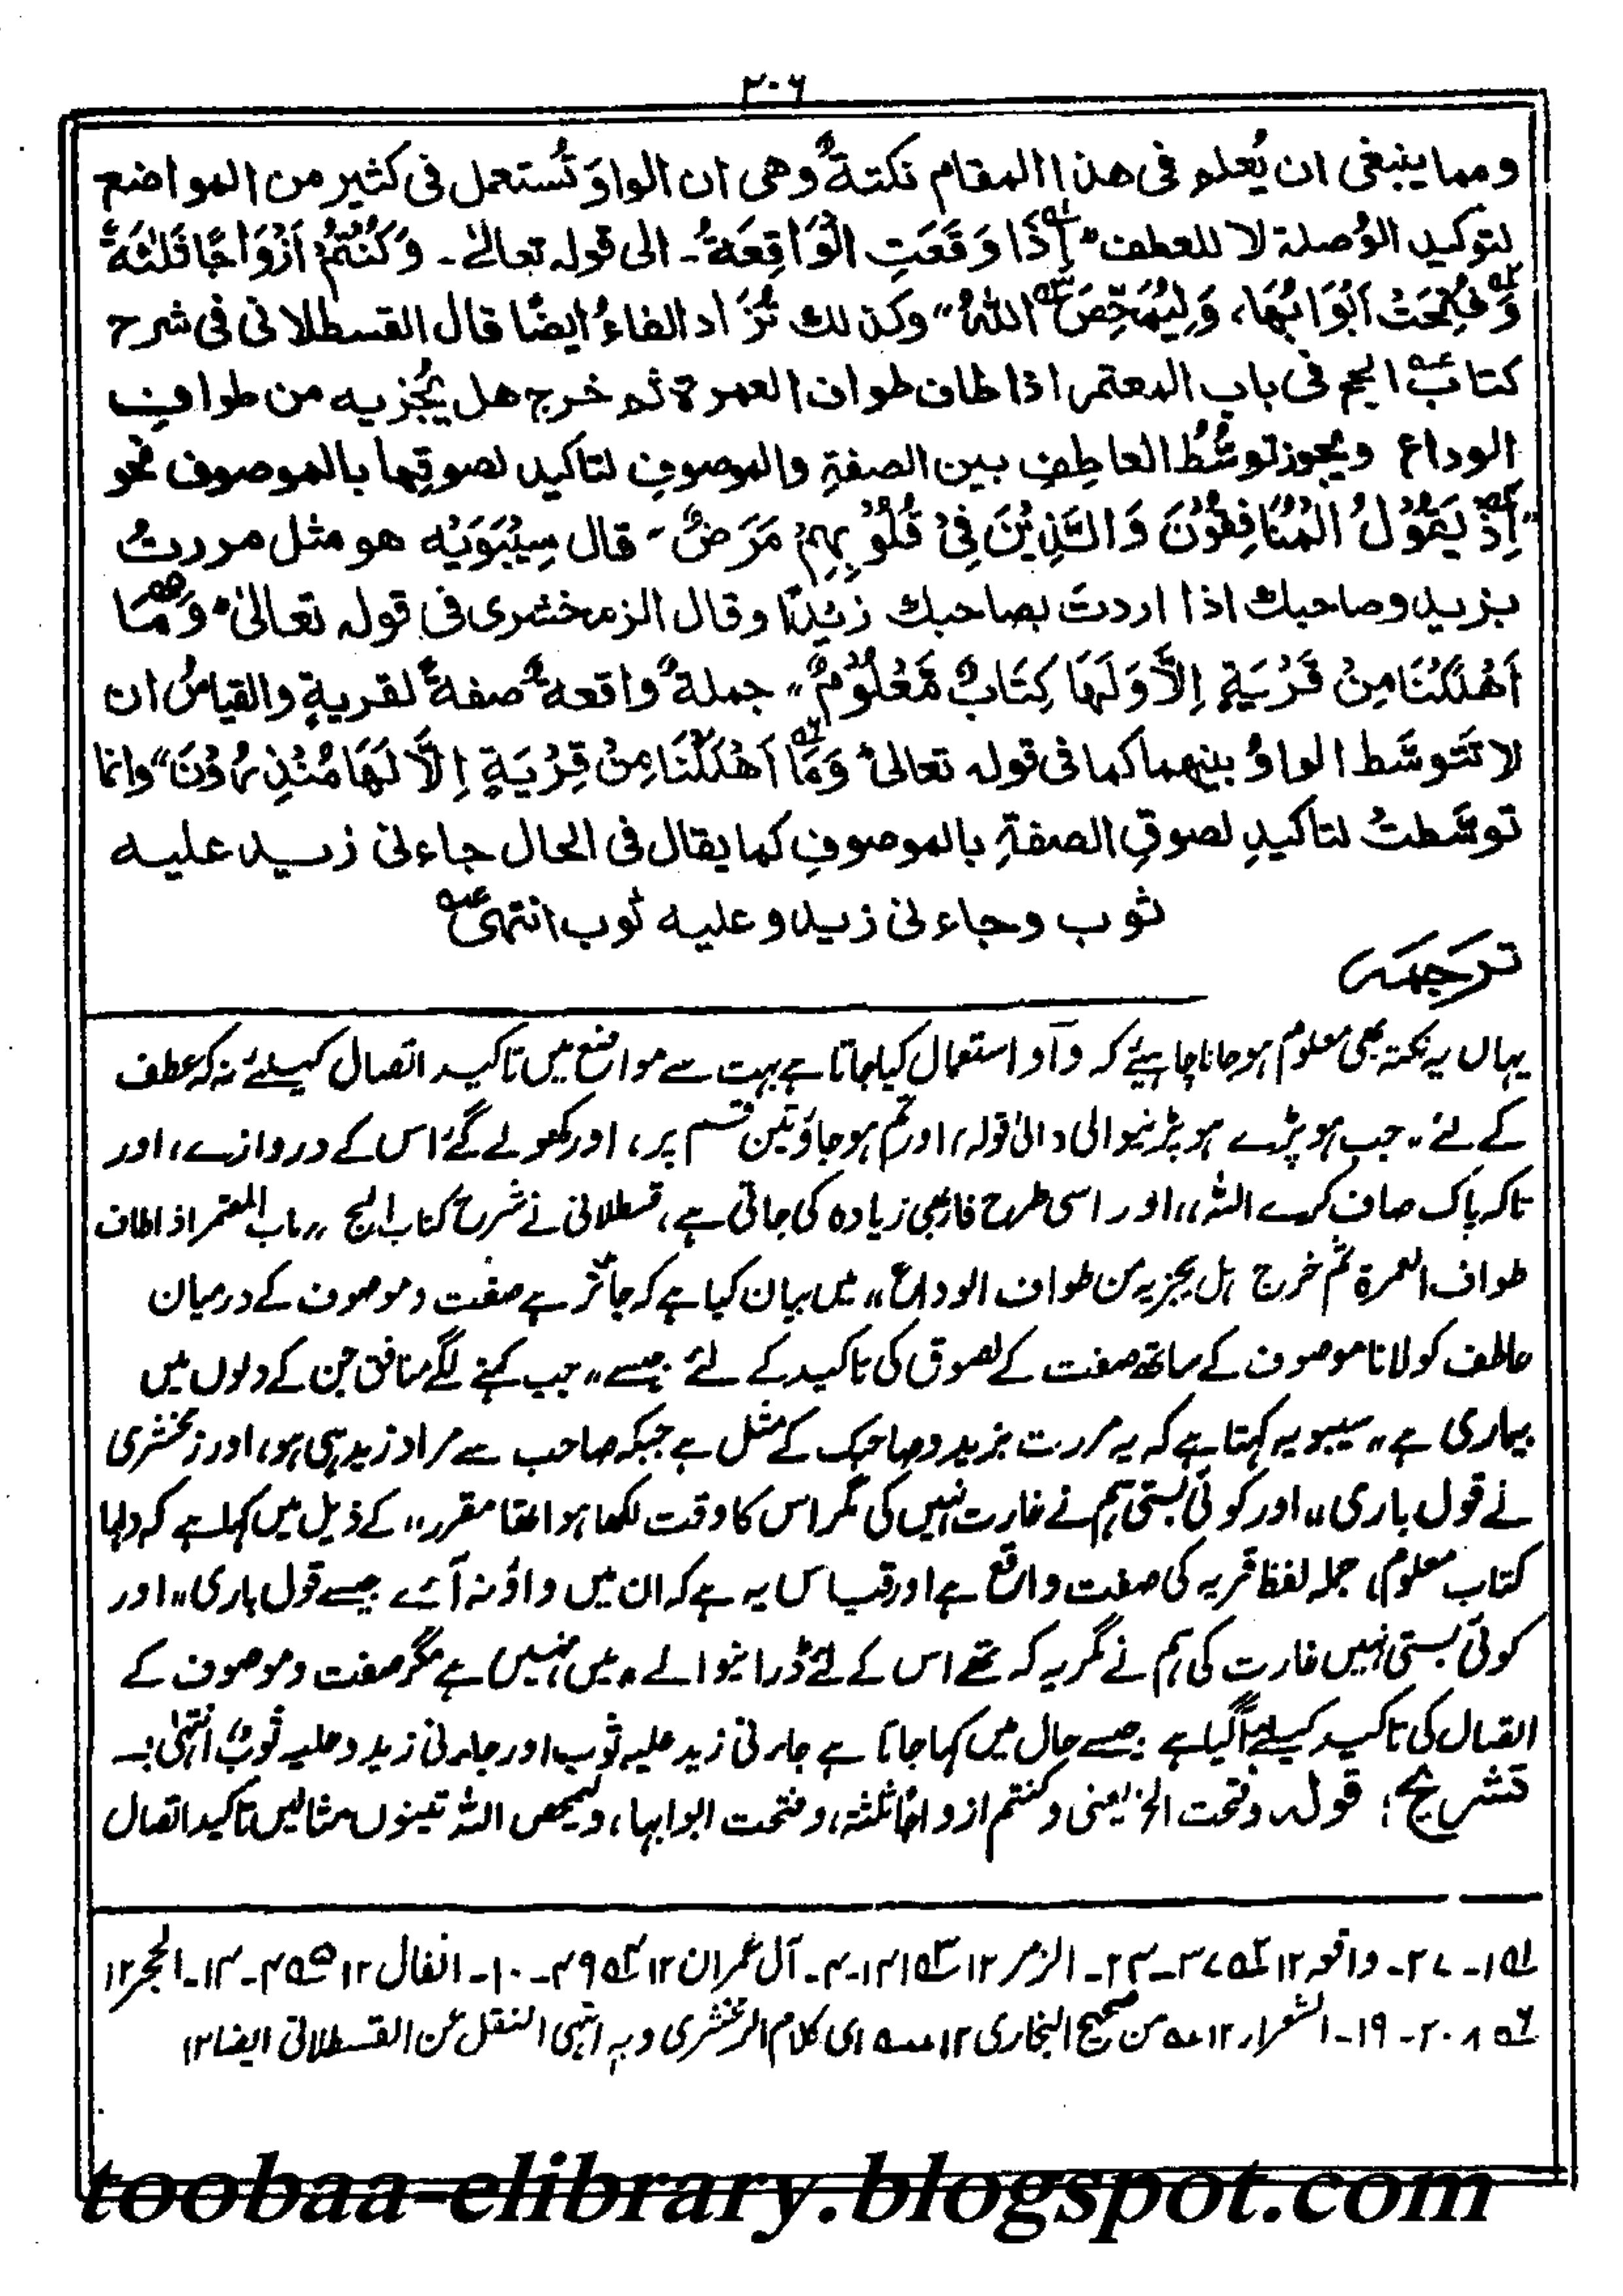 ۲۰۶
ومما ينبغى ان يُعلم فى هذا المقام نكتةٌ وهى ان الواوَ تُستعمل فى كثير من المواضع
لتوكيد الوُصلة لا للعطف "اِذَا وَقَعَتِ الْوَاقِعَةُ۔ الى قوله تعالىٰ۔ وَكُنْتُمْ اَزْوَاجًا ثَلٰثَةً
وَفُتِحَتْ اَبْوَابُهَا، وَلِيُمَحِّصَ اللّٰهُ" وكذلك تُزَاد الفاءُ ايضًا قال القسطلانى فى شرح
كتاب الحج فى باب المعتمر اذا طاف طواف العمرة ثم خرج هل يُجزيه من طوافِ
الوداع ويجوز توسُّطُ العاطِفِ بين الصفةِ والموصوفِ لتاكيد لصوقِها بالموصوف نحو
"اِذْ يَقُوْلُ الْمُنَافِقُوْنَ وَالَّذِيْنَ فِىْ قُلُوْبِهِمْ مَرَضٌ" قال سِيْبَوَيْه هو مثل مررتُ
بزيد وصاحبك اذا اردتَ بصاحبك زيدًا وقال الزمخشرى فى قوله تعالىٰ "وَمَا
اَهْلَكْنَا مِنْ قَرْيَةٍ اِلَّا وَلَهَا كِتَابٌ مَّعْلُوْمٌ" جملةٌ واقعةٌ صفةً لقريةٍ والقياسُ ان
لا تتوسَّط الواوُ بينهما كما فى قوله تعالىٰ "وَمَا اَهْلَكْنَا مِنْ قَرْيَةٍ اِلَّا لَهَا مُنْذِرُوْنَ" وانما
توسَّطتْ لتاكيدِ لصوقِ الصفةِ بالموصوفِ كما يقال فى الحال جاءنى زيد عليه
ثوب وجاءنى زيد وعليه ثوب انتهىٰ
ترجمہ
یہاں یہ نکتہ بھی معلوم ہوجانا چاہیئے کہ وآو استعمال کیا جاتا ہے بہت سے مواقع میں تاکید اتصال کیلئے نہ کہ عطف
کے لئے "جب ہو پڑے ہو پڑنیوالی دالیٰ قولہ، اور تم ہوجاؤ تین قسم پر، اور کھولے گئے اس کے دروازے، اور
تاکہ پاک صاف کرے اللہ"، اور اسی طرح فا بھی زیادہ کی جاتی ہے، قسطلانی نے شرح کتاب الحج "باب المعتمر اذا طاف
طواف العمرة ثم خرج ہل یجزیہ من طواف الوداع" میں بیان کیا ہے کہ جائز ہے صفت و موصوف کے درمیان
عاطف کو لانا موصوف کے ساتھ صفت کے لصوق کی تاکید کے لئے جیسے "جب کہنے لگے منافق جن کے دلوں میں
بیماری ہے" سیبویہ کہتا ہے کہ یہ مررت بزید وصاحبک کے مثل ہے جبکہ صاحب سے مراد زید ہی ہو، اور زمخشری
نے قول باری "اور کوئی بستی ہم نے غارت نہیں کی مگر اس کا وقت لکھا ہوا تھا مقرر" کے ذیل میں کہا ہے کہ ولہا
کتاب معلوم، جملہ لفظ قریہ کی صفت واقع ہے اور قیاس یہ ہے کہ ان میں واؤ نہ آئے جیسے قول باری "اور
کوئی بستی نہیں غارت کی ہم نے مگر یہ کہ تھے اس کے لئے ڈرانیوالے" میں نہیں ہے مگر صفت و موصوف کے
اتصال کی تاکید کیلئے آگیا ہے جیسے حال میں کہا جاتا ہے جاءنی زید علیہ ثوب اور جاءنی زید وعلیہ ثوبٌ انتہیٰ بہ
تشریح: قولہ وفتحت الخ یعنی وکنتم ازواجًا ثلثة، وفتحت ابوابہا، ولیمحص اللہ تینوں مثالیں تاکید اتصال
۱ ۱۔۲۷۔ واقعہ ۱۲ ۲ ۷۳۔۲۴۔ الزمر ۱۲ ۳ ۱۴۱۔۴۔ آل عمران ۱۲ ۴ ۴۹۔۱۰۔ انفال ۱۲ ۵ ۴۔۱۴۔ الحجر ۱۲
۶ ۲۰۸۔۱۹۔ الشعراء ۱۲ من صحیح البخاری ۱۲ ای کلام الزمخشری وبہ انتہی النقل عن القسطلانی ایضا ۱۲
toobaa-elibrary.blogspot.com